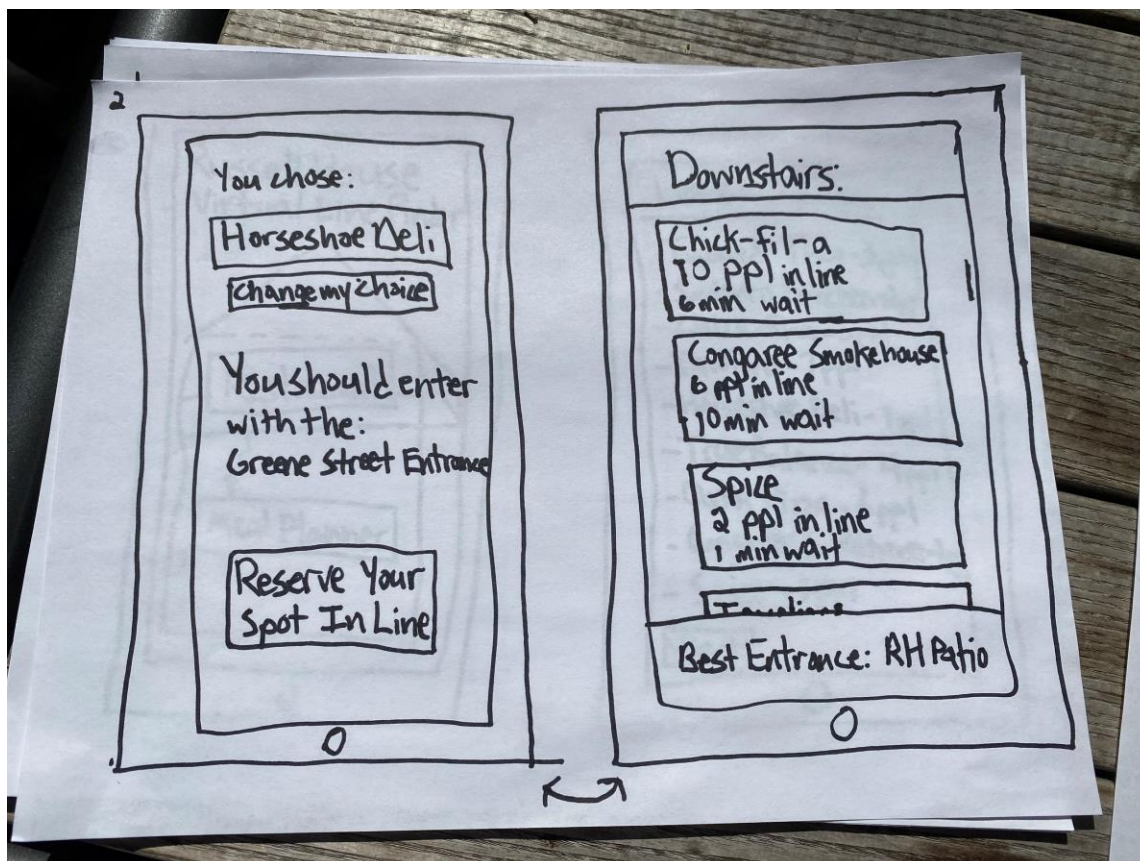 2
You chose:
Horseshoe Deli
Change my choice
You should enter
with the:
Greene Street Entrance
Reserve Your
Spot In Line
Downstairs:
Chick-fil-a
10 ppl in line
6 min wait
Congaree Smokehouse
6 ppl in line
10 min wait
Spice
2 ppl in line
1 min wait
Best Entrance: RH Patio